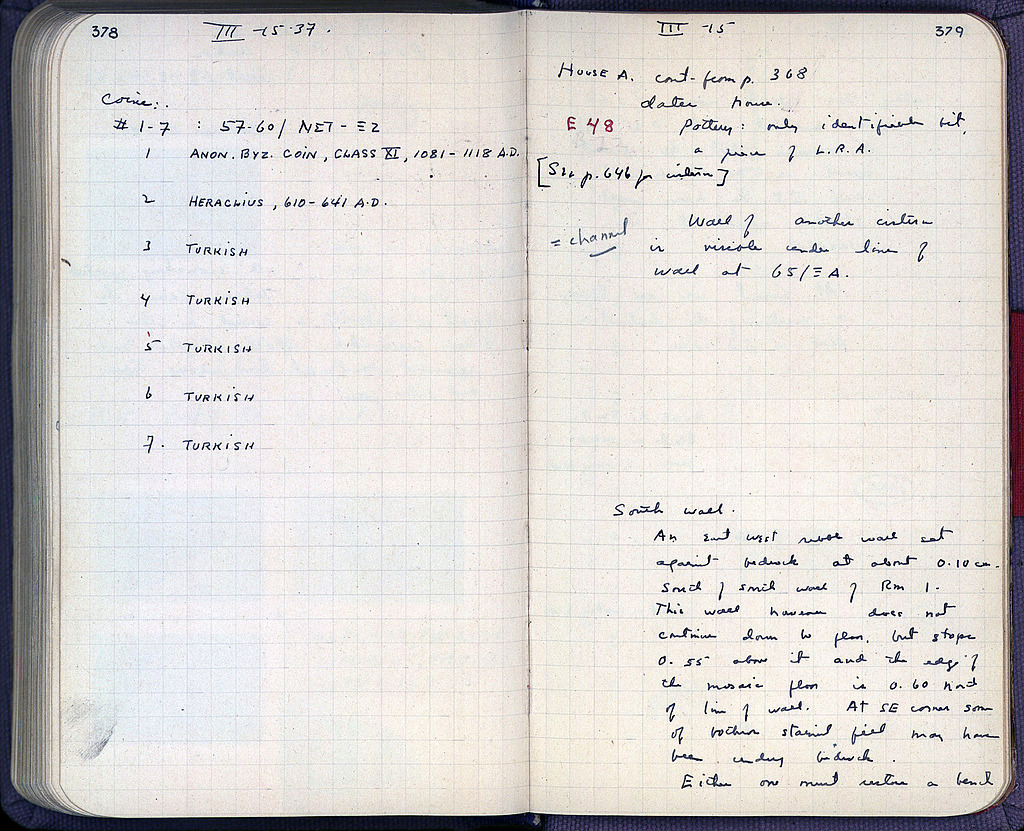 378
III -15-37.
Coins:.
# 1-7 : 57-60/ NET-Ξ2
1 ANON. BYZ. COIN, CLASS XI, 1081-1118 A.D.
2 HERACLIUS, 610-641 A.D.
3 TURKISH
4 TURKISH
5 TURKISH
6 TURKISH
7. TURKISH
III -15
379
HOUSE A. cont. from p. 368
dates house.
E 48 Pottery: only identifiable bit,
a piece of L.R.A.
[See p. 646 for cistern]
= channel
Wall of another cistern
is visible under line of
wall at 65/Ξ A.
South wall.
An east west rubble wall set
against bedrock at about 0.10 cm.
South of south wall of Rm 1.
This wall however does not
continue down to floor, but stops
0.55 above it and the edge of
the mosaic floor is 0.60 north
of line of wall. At SE corner some
of stained fill may have
been under bedrock.
Either one must restore a bench